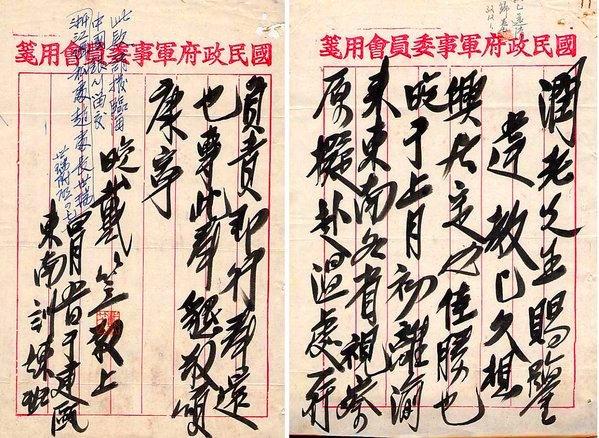 國民政府軍事委員會用箋
潤老先生賜鑒
違教已久想
興居定必佳勝也
晚于上月初離渝
來東南各省視察
原擬赴溫處一行
國民政府軍事委員會用箋
負責即行奉還
也專此奉懇敬頌
康寧
晚戴笠敬上
四月 日于建甌
東南訓練班
此款
中國銀行
浙江 趙處長世瑞